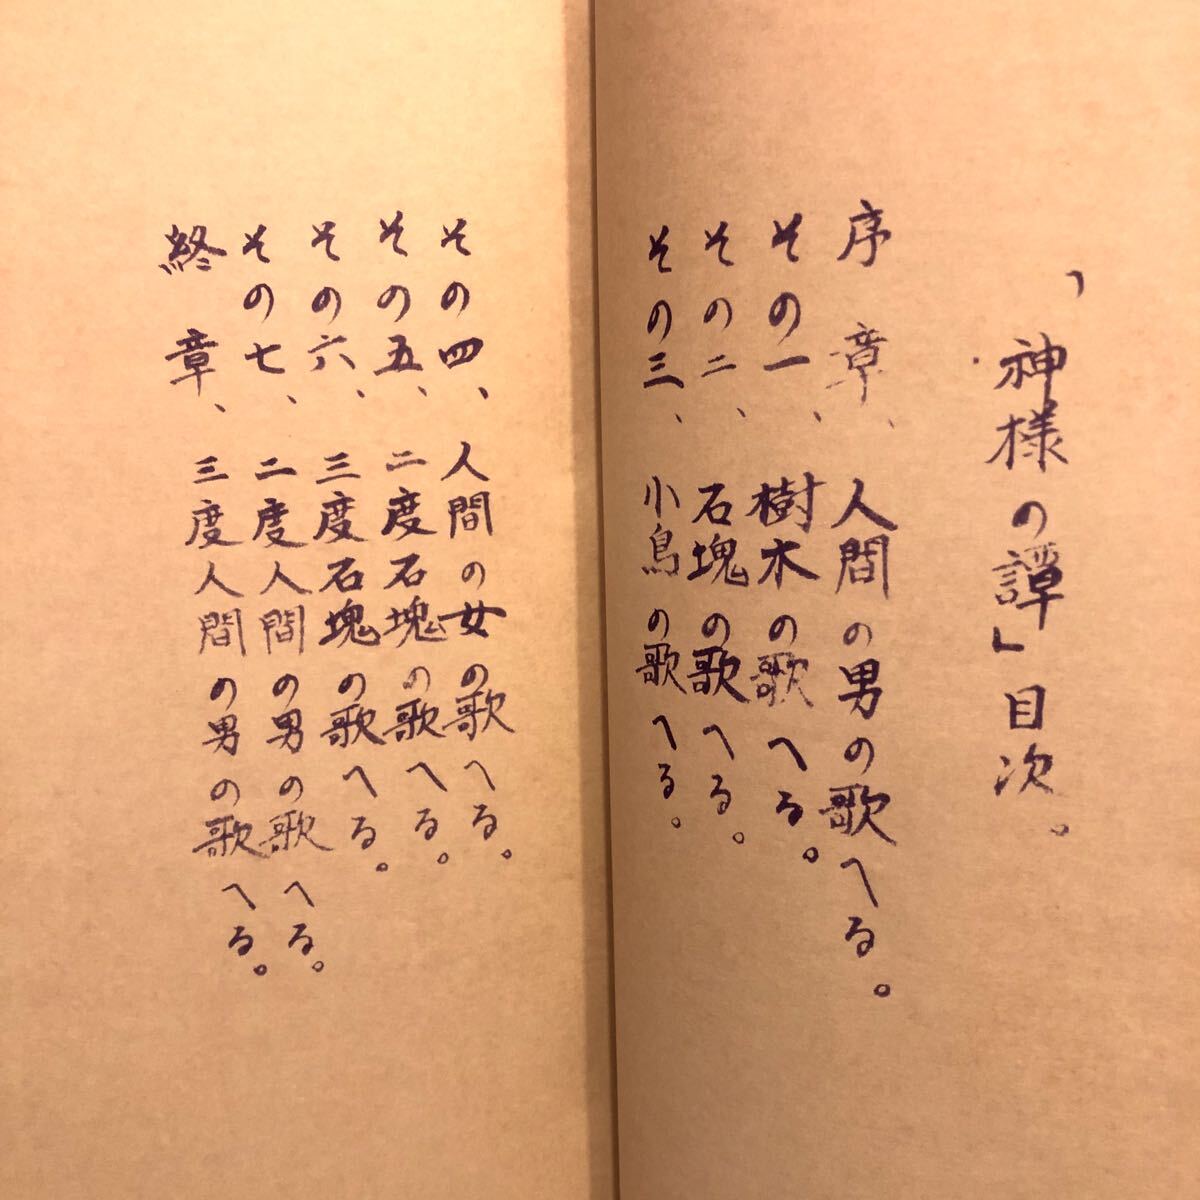 「神様の譚」目次。
序章、人間の男の歌へる。
その一、樹木の歌へる。
その二、石塊の歌へる。
その三、小鳥の歌へる。
その四、人間の女の歌へる。
その五、二度石塊の歌へる。
その六、三度石塊の歌へる。
その七、二度人間の男の歌へる。
終章、三度人間の男の歌へる。